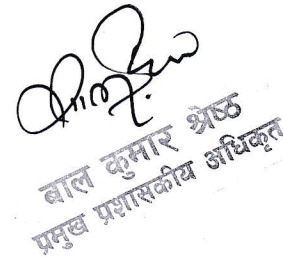 बाल कुमार श्रेष्ठ
प्रमुख प्रशासकीय अधिकृत